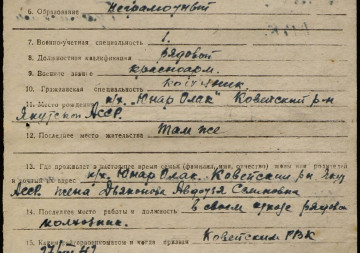 6. Образование неграмотный
7. Военно-учетная специальность 1.
8. Должностная квалификация рядовой
9. Военное звание красноарм.
10. Гражданская специальность
11. Место рождения к/х. "Юнар Олак" Ковейский р-н
Якутской Асср.
12. Последнее место жительства Там же
13. Где проживает в настоящее время семья (фамилия, имя, отчество) жены или родителей
и точный их адрес к/х. "Юнар Олак" Ковейский рн
Асср. жена Дьяконова Авдотья Семновна
14. Последнее место работы и должность в своем
колхозник.
15. Каким и числа призван Ковейским РВК